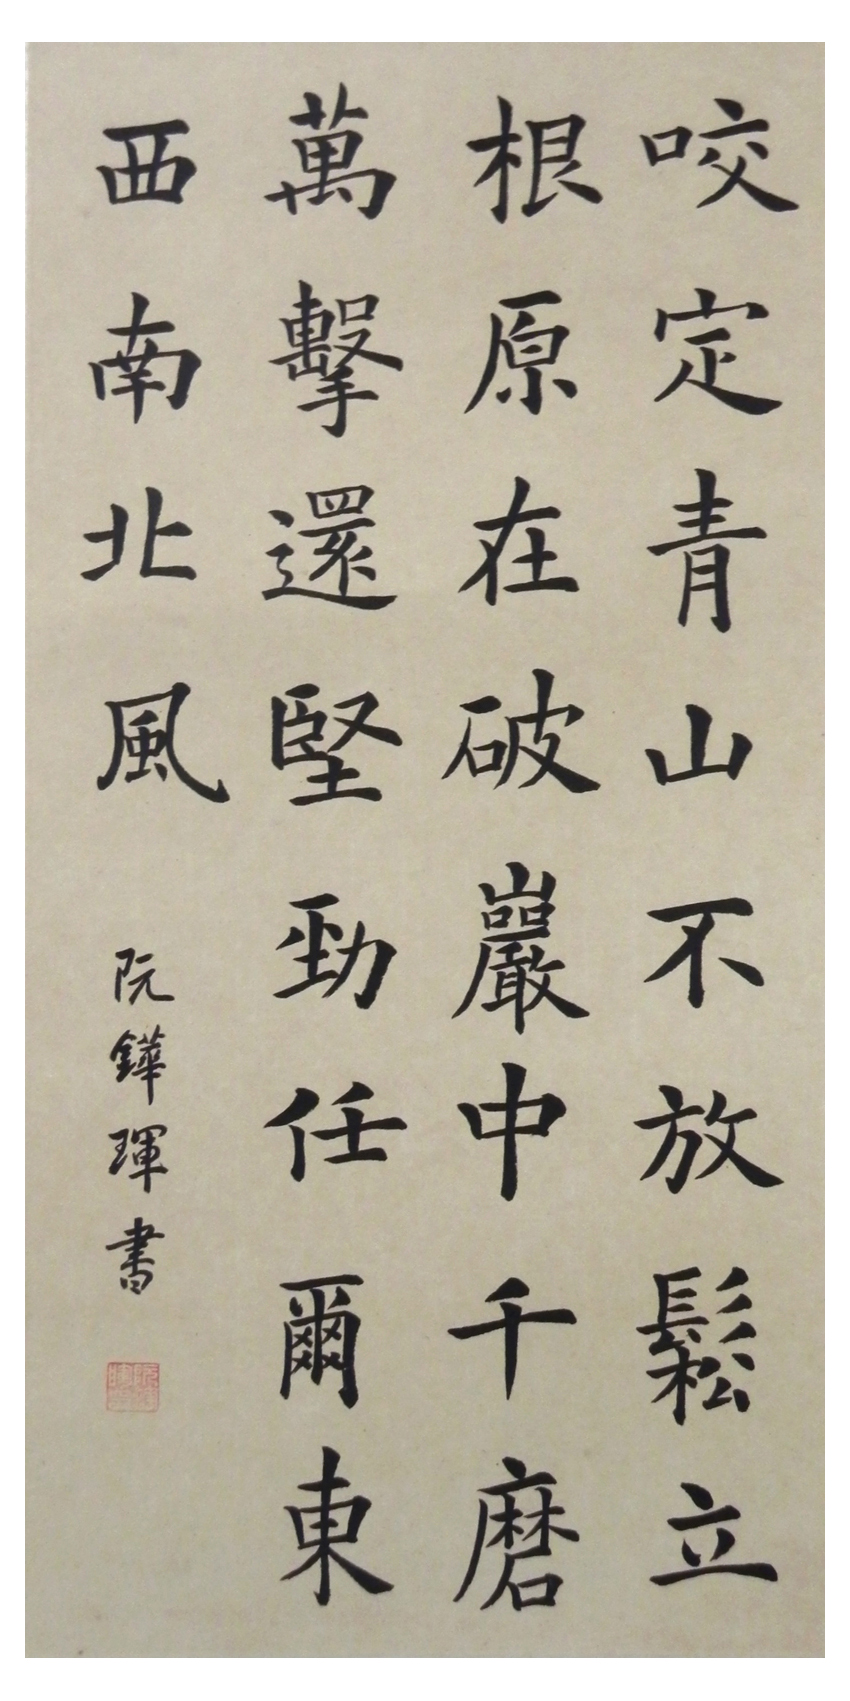 咬定青山不放鬆立
根原在破巖中千磨
萬擊還堅勁任爾東
西南北風
阮鏵琿書